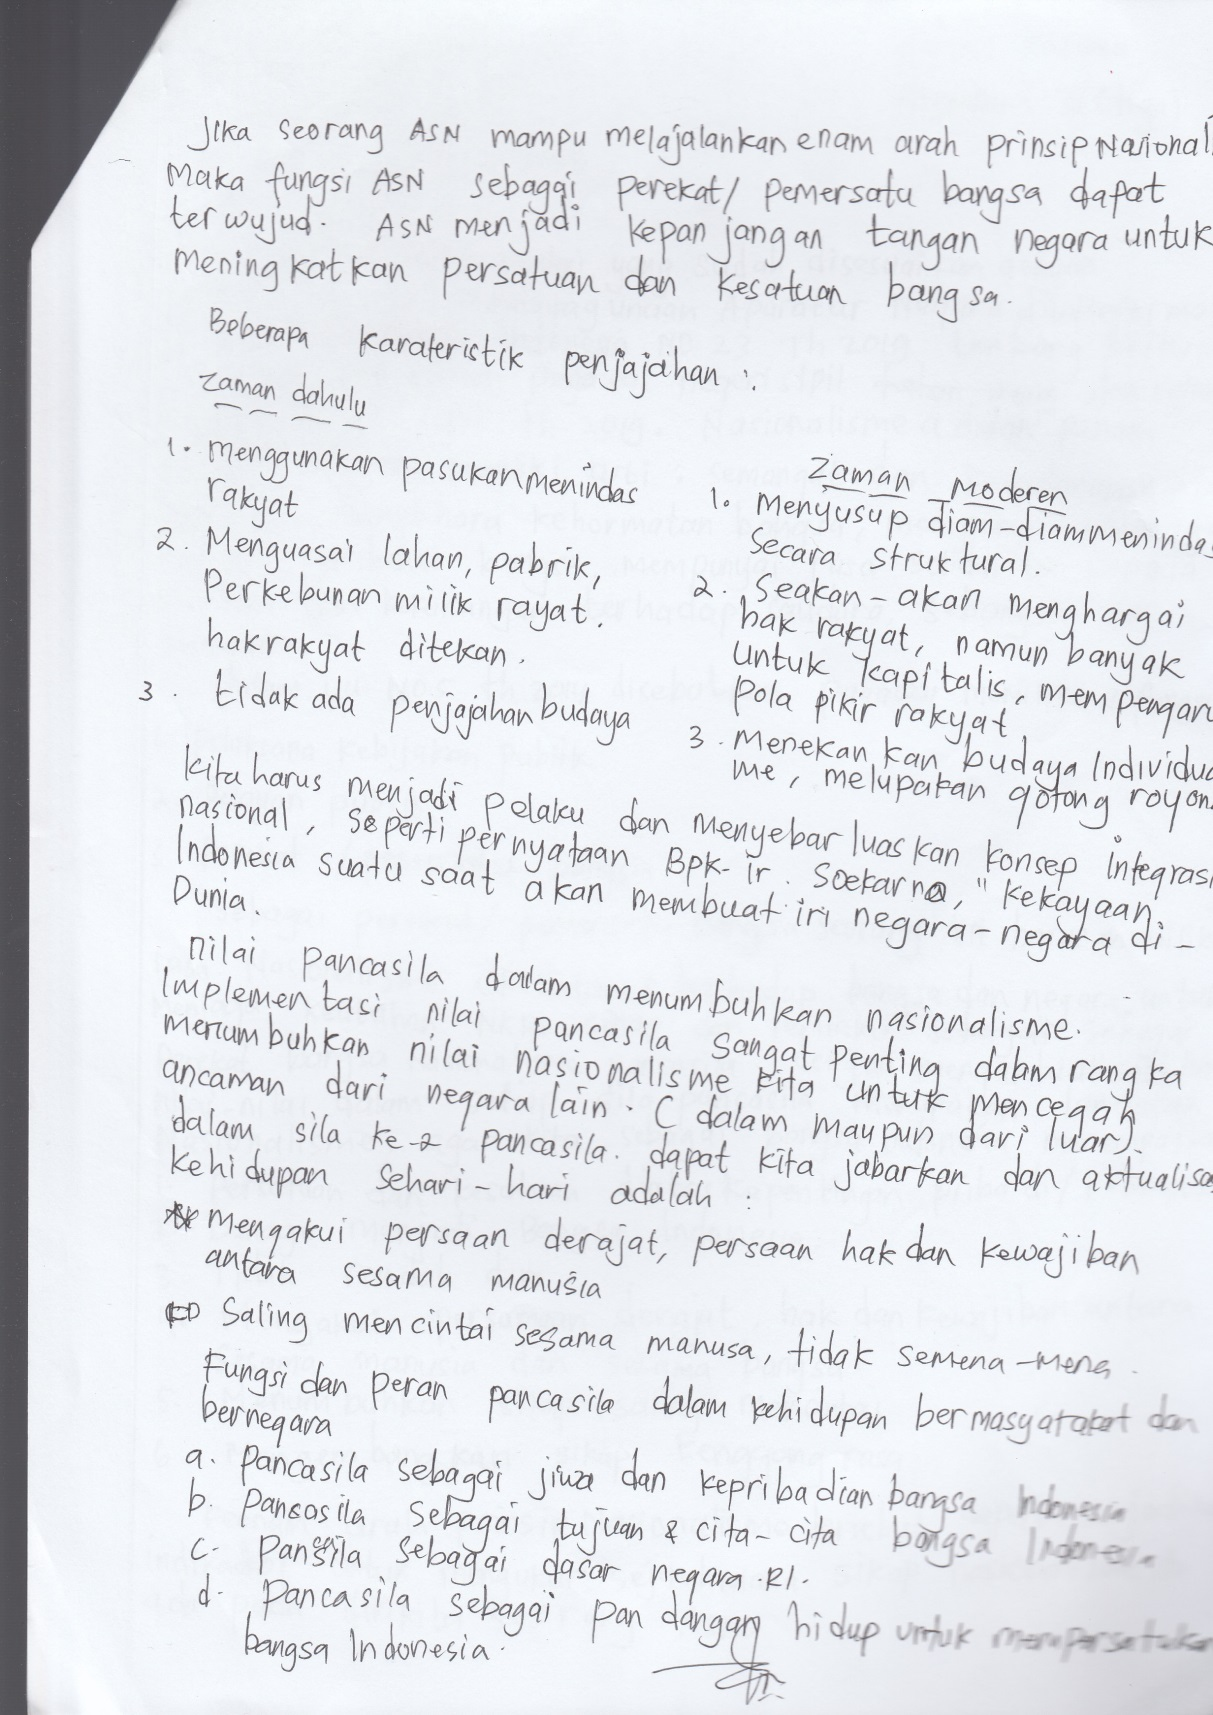 Jika seorang ASN mampu melajalankan enam arah prinsip Nasional
Maka fungsi ASN sebagai perekat/ pemersatu bangsa dapat
terwujud. ASN menjadi kepanjangan tangan negara untuk
meningkatkan persatuan dan kesatuan bangsa.
Beberapa karateristik penjajahan :
Zaman dahulu
1. menggunakan pasukan menindas
rakyat
2. Menguasai lahan, pabrik,
Perkebunan milik rayat.
hak rakyat ditekan.
3. tidak ada penjajahan budaya
Zaman moderen
1. menyusup diam-diam menindas
secara struktural.
2. Seakan-akan menghargai
hak rakyat, namun banyak
untuk kapitalis, mempengaru
pola pikir rakyat
3. menekan kan budaya Individua
me, melupakan gotong royon
kita harus menjadi pelaku dan menyebar luaskan konsep integrasi
nasional, seperti pernyataan Bpk. ir. Soekarno, " kekayaan
Indonesia suatu saat akan membuat iri negara-negara di-
Dunia.
nilai pancasila dalam menumbuhkan nasionalisme.
Implementasi nilai pancasila sangat penting dalam rangka
menumbuhkan nilai nasionalisme kita untuk mencegah
ancaman dari negara lain. (dalam maupun dari luar).
dalam sila ke-2 pancasila. dapat kita jabarkan dan aktualisa
kehidupan sehari-hari adalah :
* mengakui persaan derajat, persaan hak dan kewajiban
antara sesama manusia
Saling mencintai sesama manusa, tidak semena-mena.
Fungsi dan peran pancasila dalam kehidupan bermasyarakat dan
bernegara
a. pancasila sebagai jiwa dan kepribadian bangsa Indonesia
b. pancasila sebagai tujuan & cita-cita bangsa Indonesia
c. pancasila sebagai dasar negara RI.
d. pancasila sebagai pandangan hidup untuk mempersatukan
bangsa Indonesia.